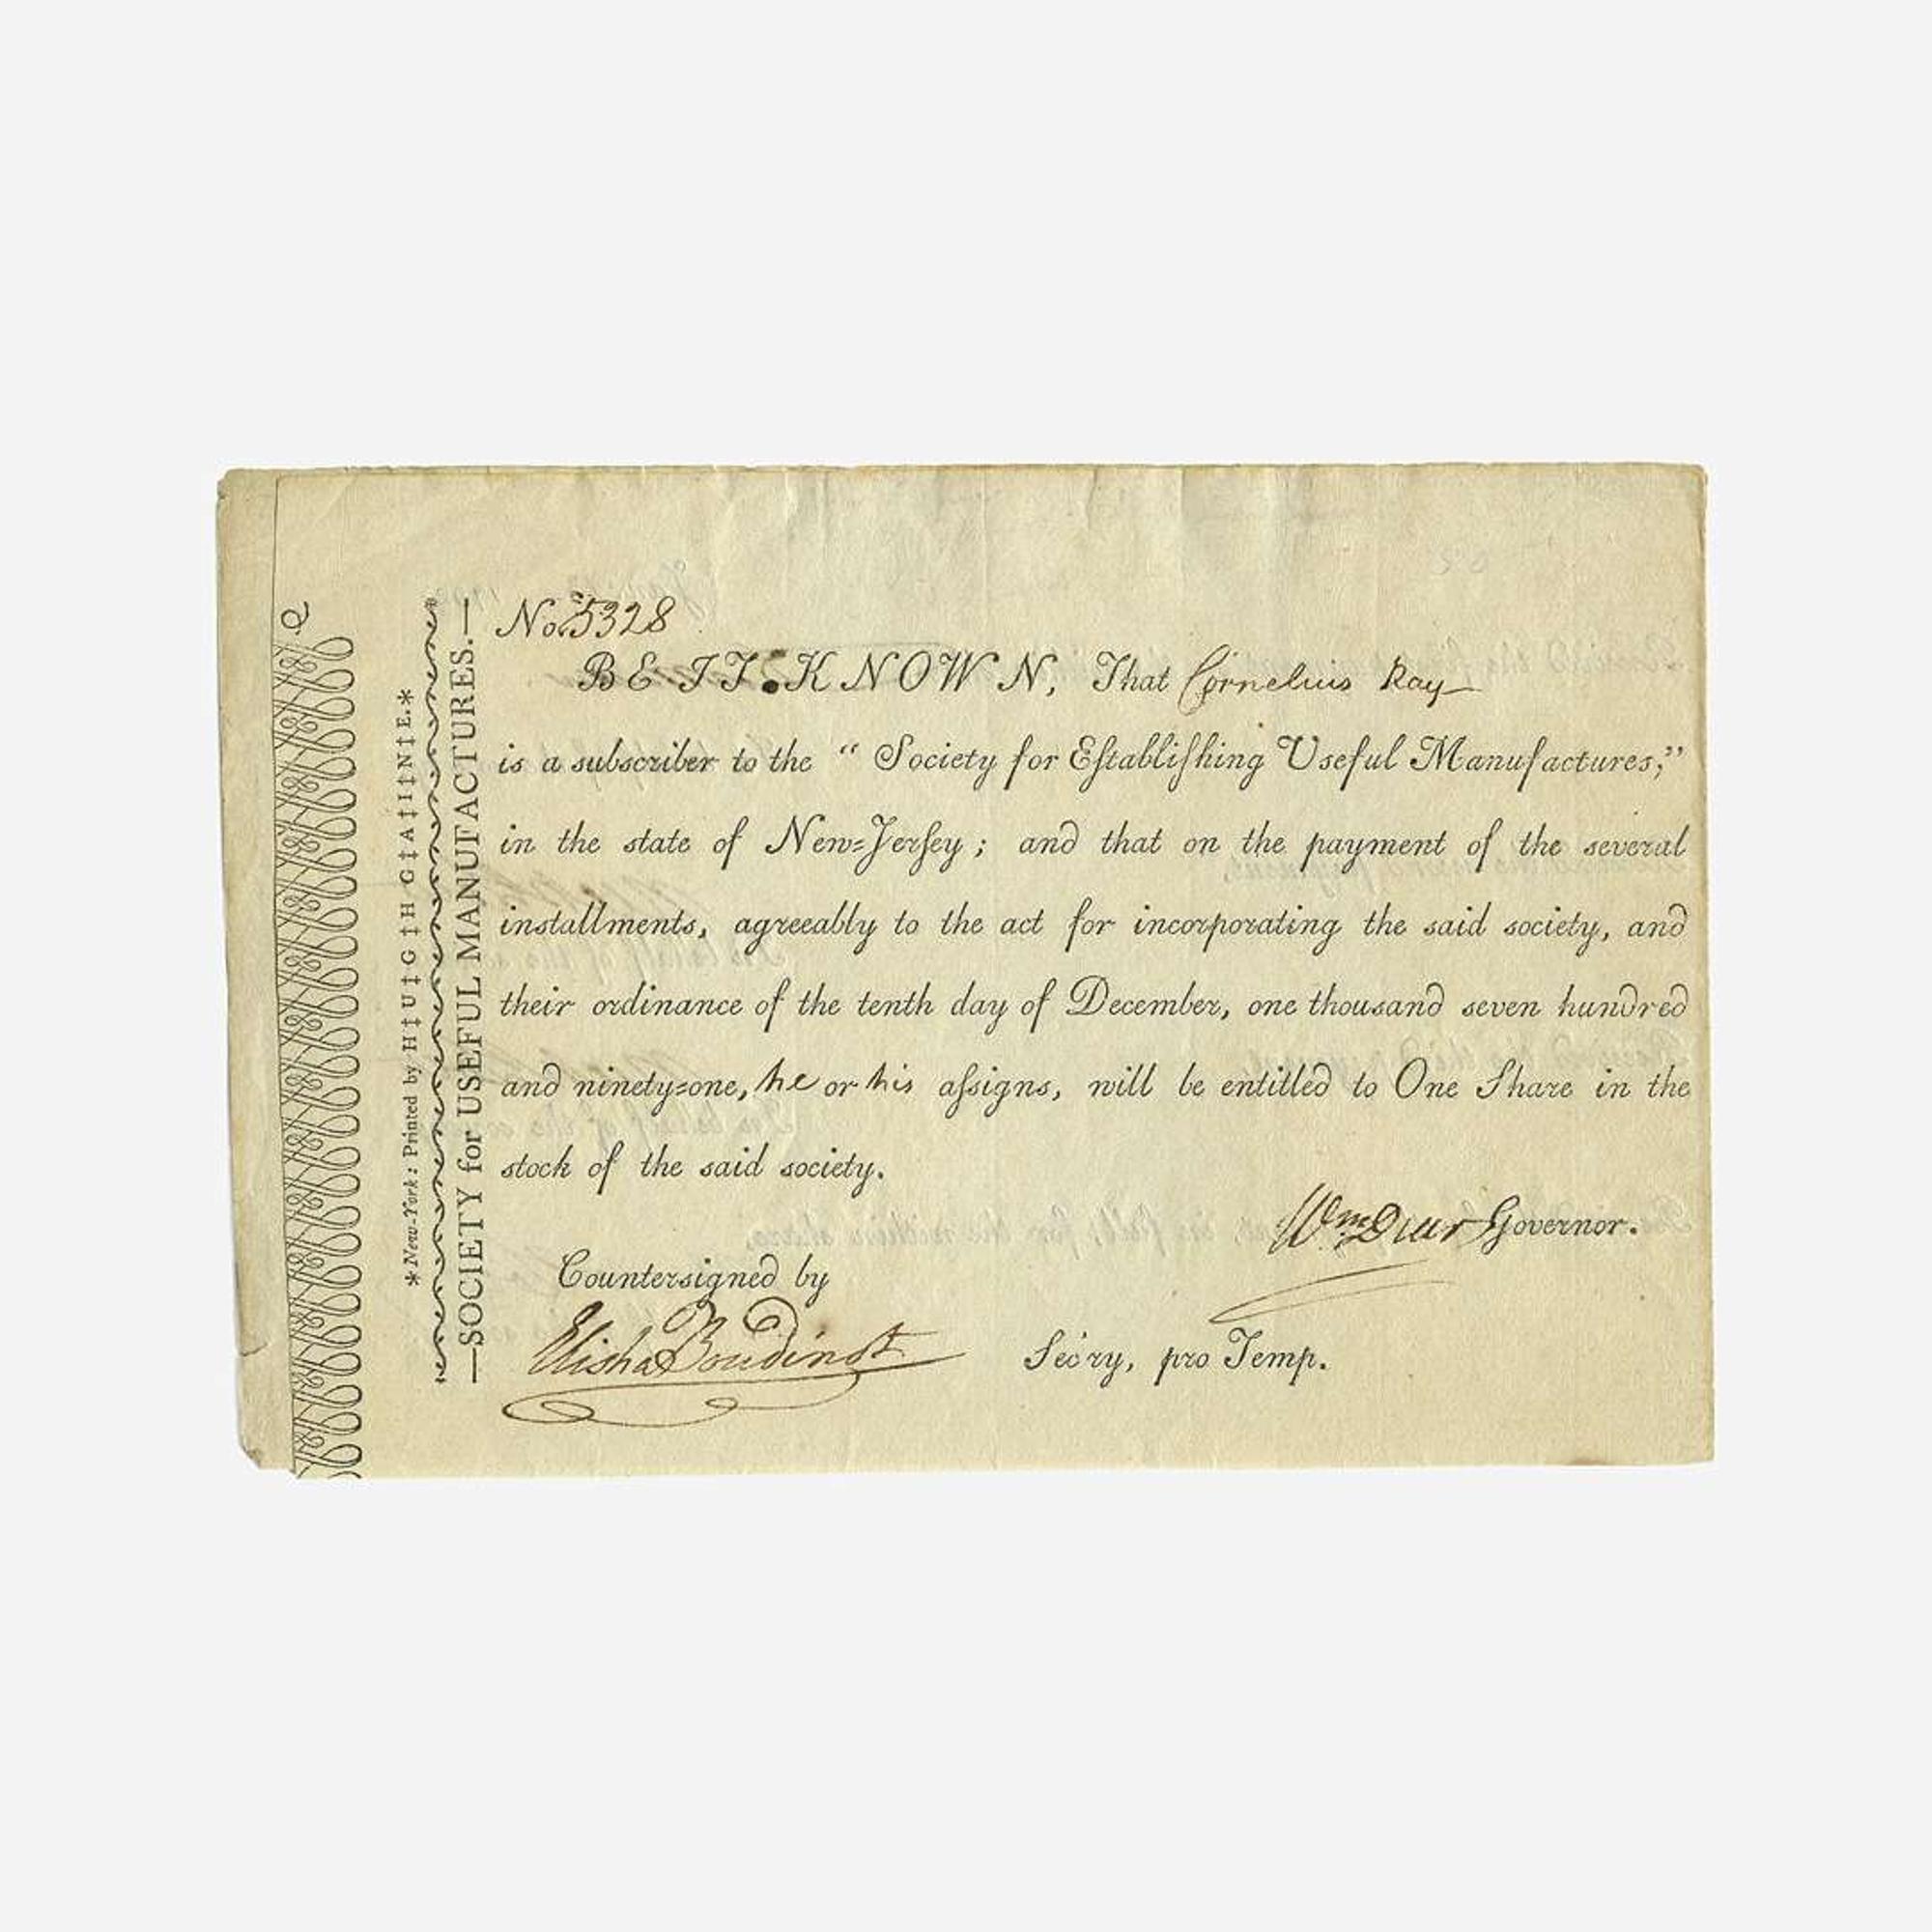 No. 5328
BE IT KNOWN, That Cornelius Ray
is a subscriber to the “ Society for Eſtabliſhing Useful Manufactures,”
in the state of New=Jerſey ; and that on the payment of the several
installments, agreeably to the act for incorporating the said society, and
their ordinance of the tenth day of December, one thousand seven hundred
and ninety=one, he or his aſsigns, will be entitled to One Share in the
stock of the said society.
Wm Duer Governor.
Countersigned by
Elisha Boudinot Sec'ry, pro Temp.
—SOCIETY for USEFUL MANUFACTURES.—
*New-York: Printed by H‡U‡G‡H G‡A‡I‡N‡E.*